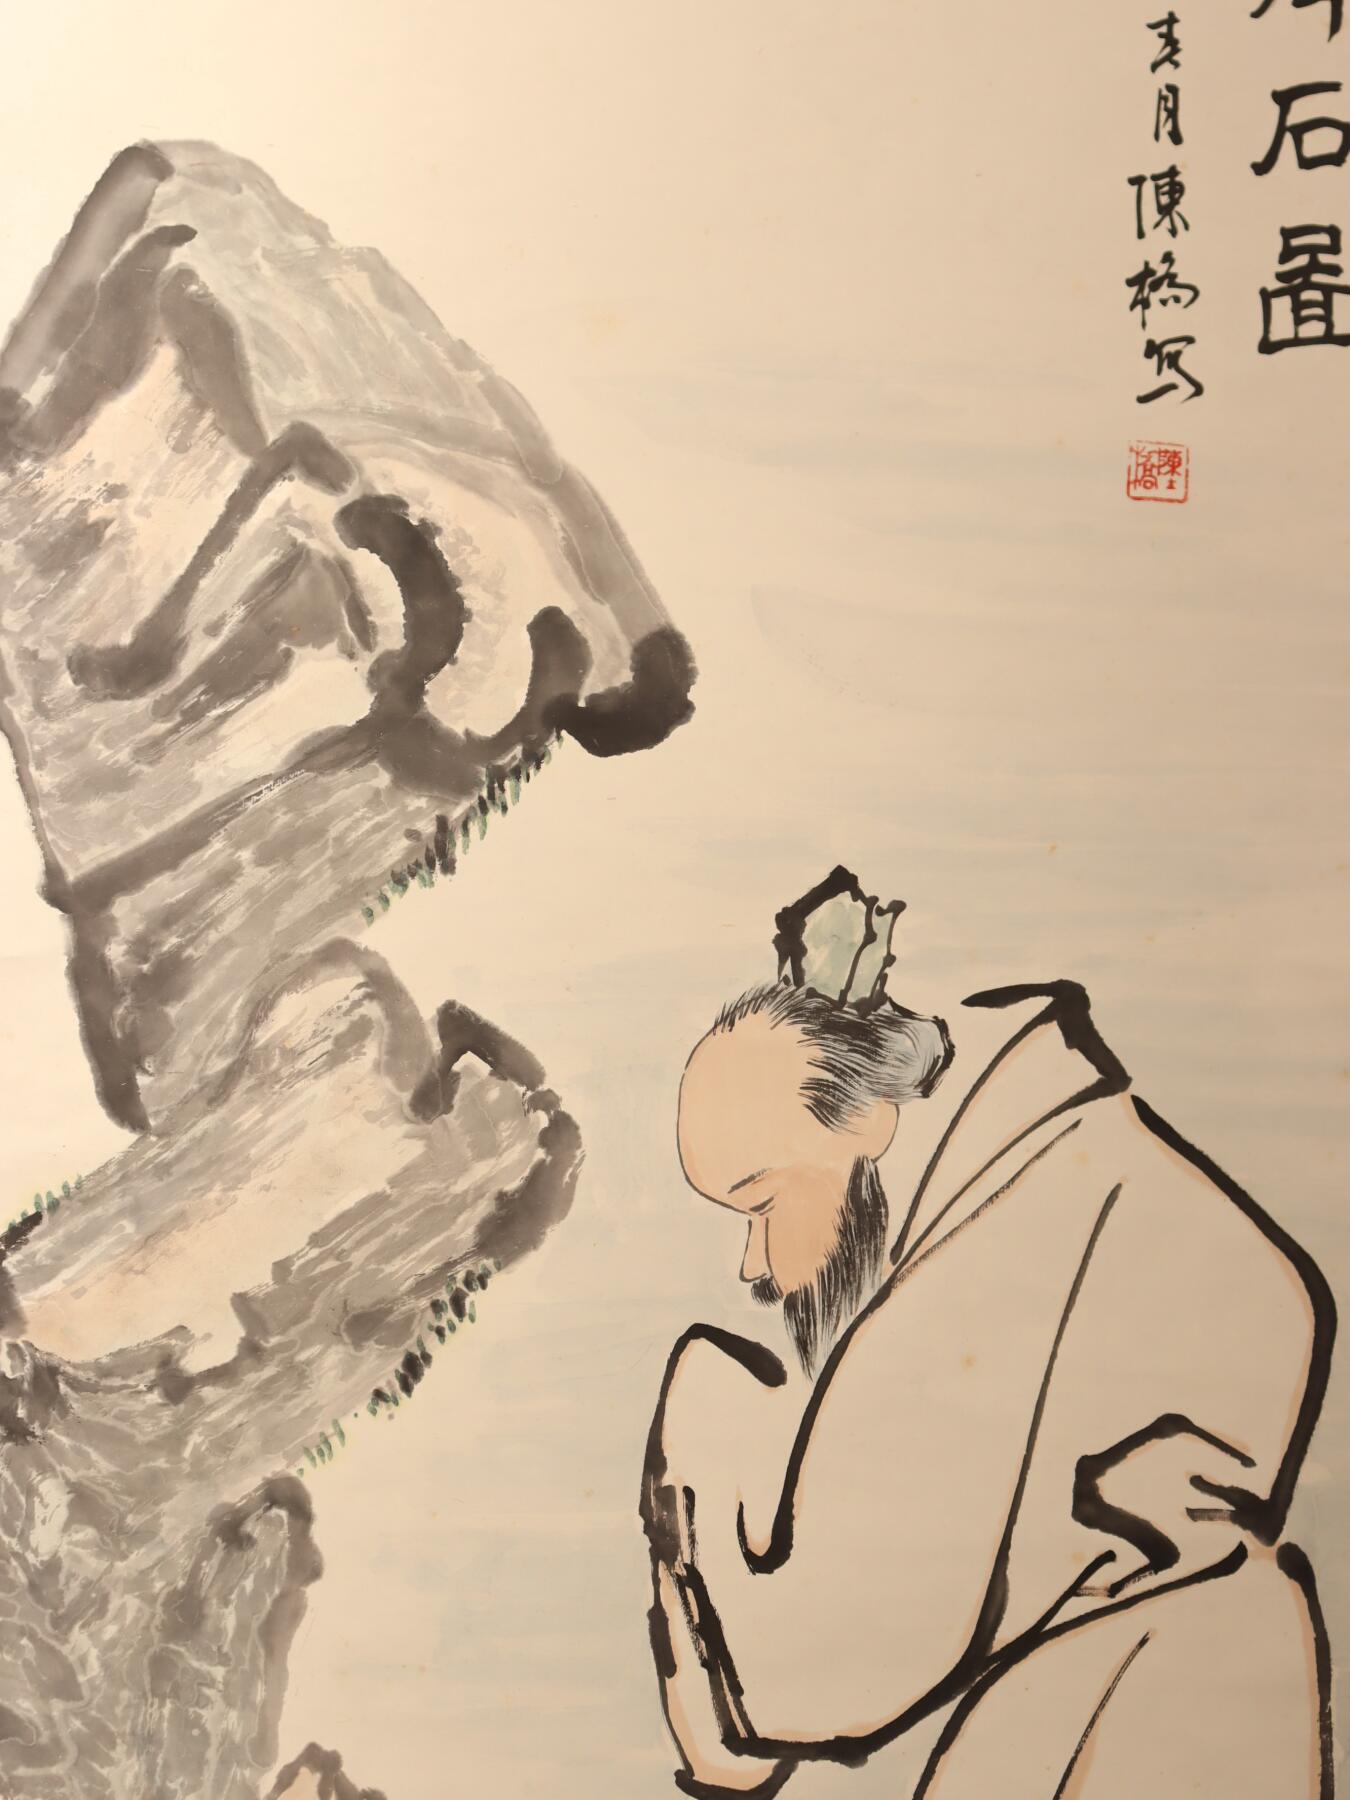 石圖
春月陳橋写
陳橋